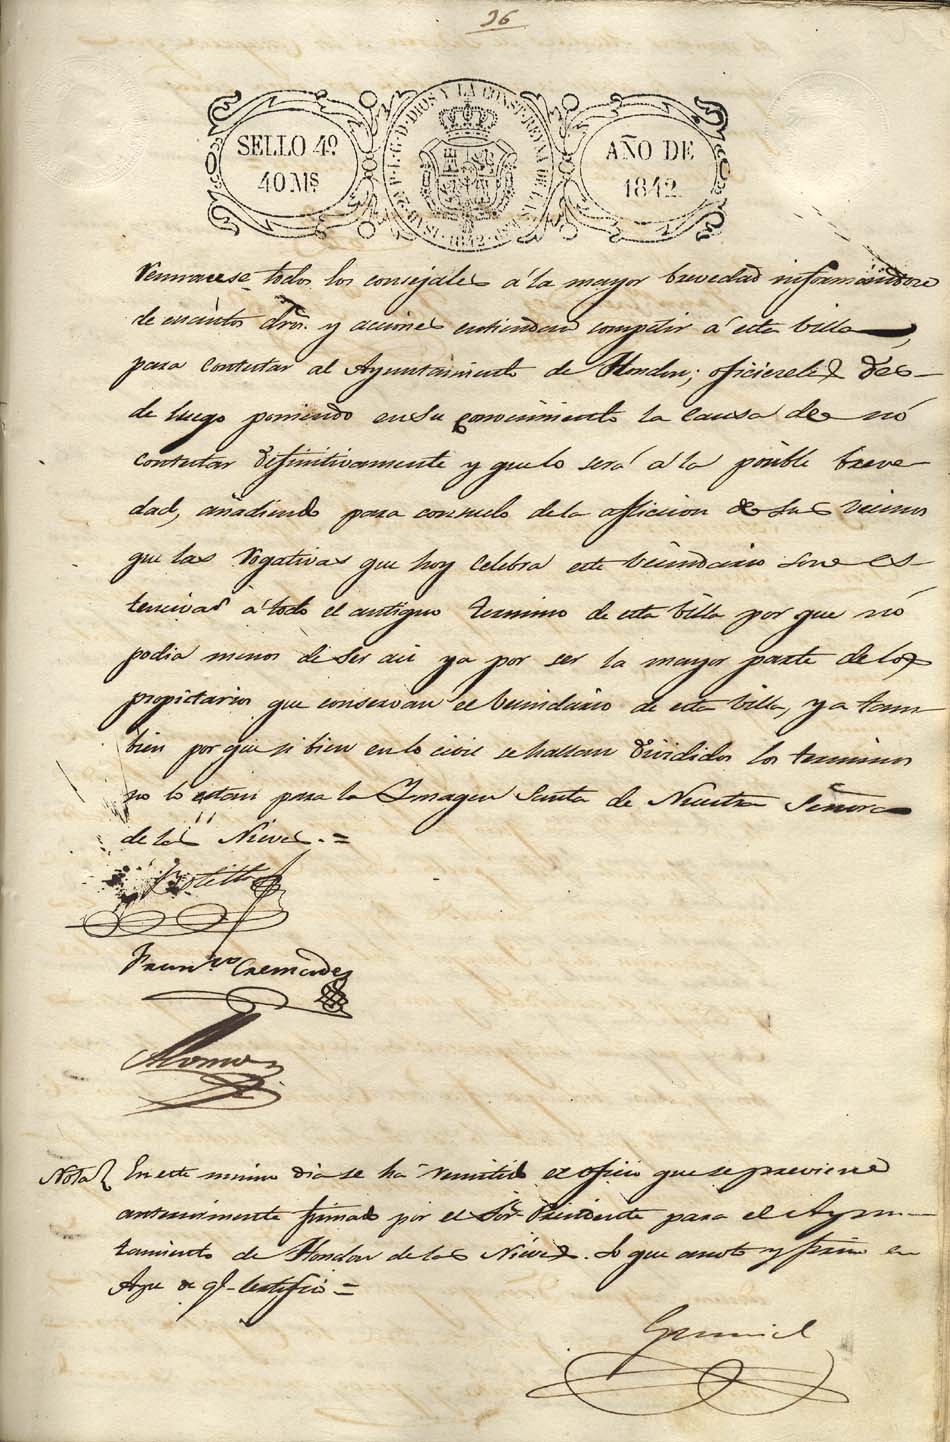 36
SELLO 4º
40 Mˢ
ISAB. 2ª P. L. G. D. DIOS Y LA CONST. REYNA DE LAS ESP.
1842
AÑO DE
1842
reunanse todos los consejales á la mayor brevedad informandose
de cuántos dros. y acciones entiendan competir á esta Villa,
para contestar al Ayuntamiento de Hondon; oficiesele des-
de luego poniendo en su conocimiento la causa de nó
contestar definitivamente y que lo será á la posible breve-
dad, añadiendo para consuelo de la afliccion de sus vecinos
que las rogativas que hoy celebra este vecindario son es-
tensivas á todo el antiguo termino de esta Villa por que nó
podia menos de ser asi ya por ser la mayor parte de los
propietarios que conservan el vecindario de esta Villa, ya tam-
bien por que si bien en lo civil se hallan divididos los terminos
no lo están para la Imagen Santa de Nuestra Señora
de las Nieves. =
Botella
Franco Cremades
Alonso
Nota En este mismo dia se há remitido el oficio que se previene
anteriormente firmado por el Sor. Presidente para el Ayun-
tamiento de Hondon de las Nieves. Lo que anoto y firmo en
Aspe de q.e certifico =